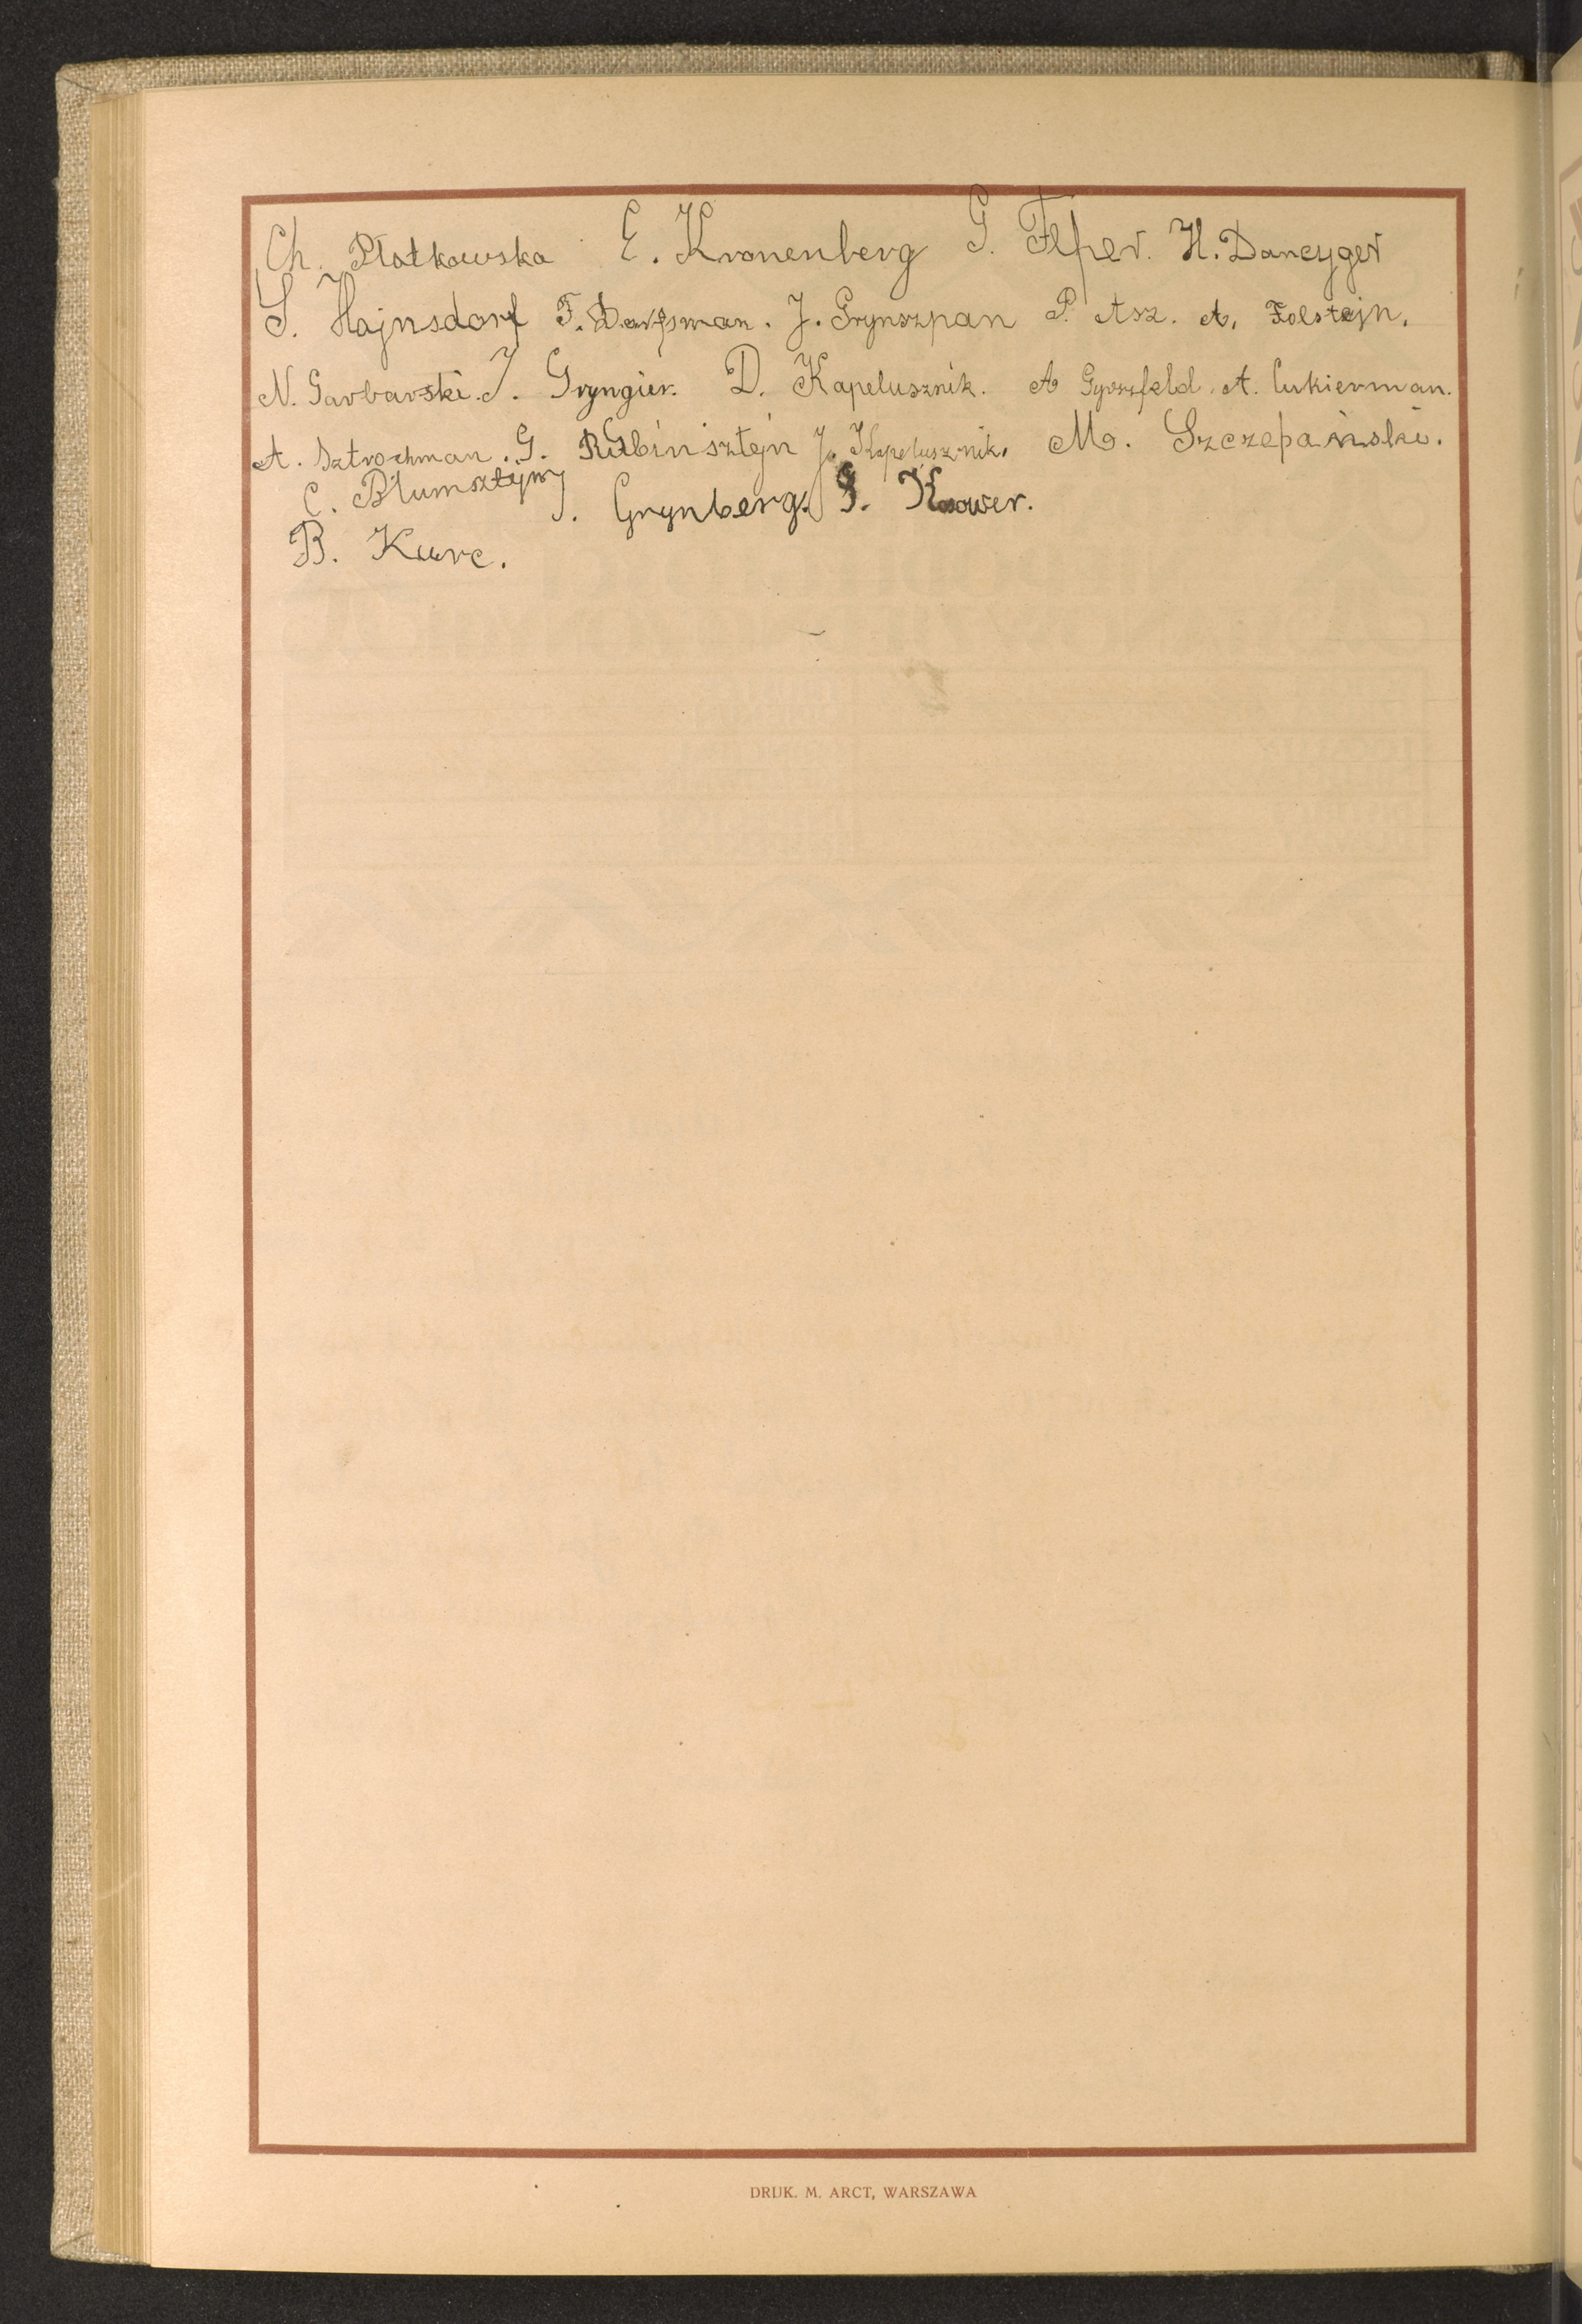 Ch. Płatkowska E. Kronenberg G. Felper. H. Dancyger
S. Hajnsdorf F. Dorfsman. J. Grynszpan P. Asz. A. Folstejn.
N. Garbarski. J. Gryngier. D. Kapelusznik. A Gyrszfeld. A. Cukierman.
A. Sztrochman. G. Rubinsztejn J. Kapelusznik. M. Szczepański.
C. Blumsztejn J. Grynberg. G. Kower.
B. Kurc.
DRUK. M. ARCT, WARSZAWA